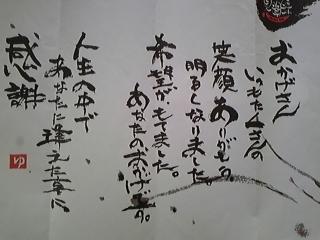 おかげさん
いつもたくさんの
笑顔ありがとう。
明るくなりました。
希望がもてました。
あなたのおかげです。
人生の中で
あなたに逢えた事に
感謝
ゆ